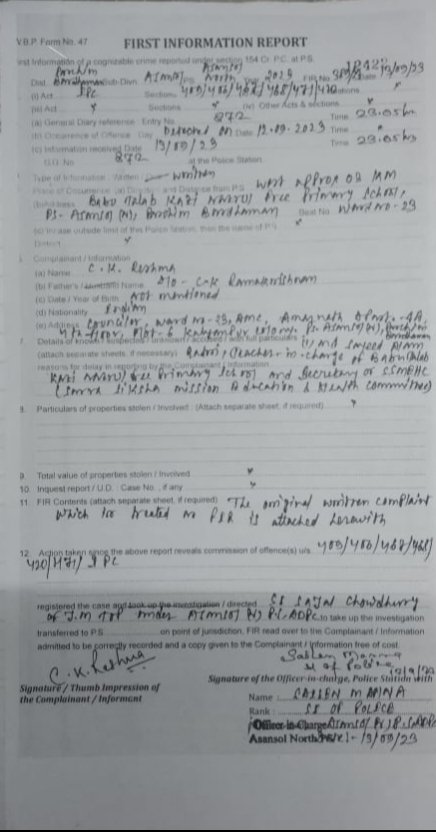 V.B.P. Form No. 47
FIRST INFORMATION REPORT
First Information of a cognizable crime reported under section 154 Cr. P.C. at P.S.
Paschim Asansol
Dist. Bardhaman Sub-Divn. Asansol P.S. North Year 2023 FIR No. Date 13/09/23
(i) Act IPC Sections 409/406/468/471/420
(iii) Act Sections (iv) Other Acts & sections
(a) General Diary reference Entry No. 872 Time 23.05 hrs
(b) Occurrence of Offence Day Detected on Date 12.09.2023 Time
(c) Information received Date 13/09/23 Time 23.05 hrs
G.D. No. 872 at the Police Station.
Type of Information : Written written
Place of Occurrence (a) Direction and Distance from P.S. West approx 03 KM
(b) Address Babu Talab Kazi Nazrul Free Primary School,
PS- Asansol (N), Paschim Bardhaman Beat No. Ward no- 23
(c) In case outside limit of this Police Station, then the name of P.S.
District
Complainant / Information
(a) Name C. K. Reshma
(b) Father's / Name D/O - C.K Ramakrishnan
(c) Date / Year of Birth Not mentioned
(d) Nationality Indian
(e) Address Councilor, Ward no- 23, AMC, Amarnath Apart.-4A,
4th floor, Plot-6 Kalyanpur PS- Asansol (N), Paschim Bardhaman
7. Details of known / suspected / unknown / accused / with full particulars (1) Md Sayeed Alam
(attach separate sheets, if necessary) Teacher-in-charge of Babu Talab
reasons for delay in reporting by the Complainant / Information
Kazi Nazrul Free Primary School and Secretary of SSMEHC
(Sarva Siksha Mission Education & Health Committee)
8. Particulars of properties stolen / Involved : (Attach separate sheet, if required)
9. Total value of properties stolen / Involved
10. Inquest report / U.D. : Case No., if any
11. FIR Contents (attach separate sheet, if required) The original written complaint
which is treated as FIR is attached herewith
12. Action taken since the above report reveals commission of offence(s) u/s. 409/406/468/
420/471 IPC
registered the case and took up the investigation / directed SI Sajal Chowdhury
of J.M TOP under Asansol (N) PS, ADPC to take up the investigation
transferred to P.S. on point of jurisdiction, FIR read over to the Complainant / Information
admitted to be correctly recorded and a copy given to the Complainant / Information free of cost.
C. K. Reshma
SI of Police
Signature / Thumb Impression of
the Complainant / Informant
Signature of the Officer-in-charge, Police Station with
Name :
Rank : SI OF POLICE
Officer-in-Charge Asansol (N) PS, ADPC
Asansol North P.S. 13/09/23